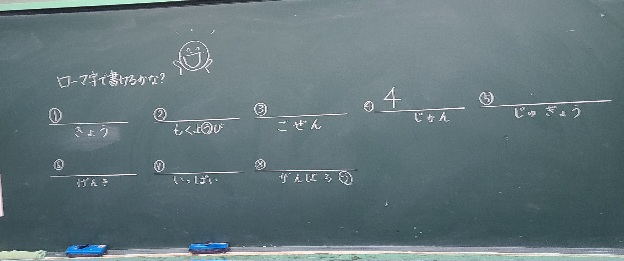 ローマ字で書けるかな?
① きょう
② もくようび
③ こぜん
④ 4 じかん
⑤ じゅぎょう
⑥ げんき
⑦ いっぱい
⑧ がんばろう